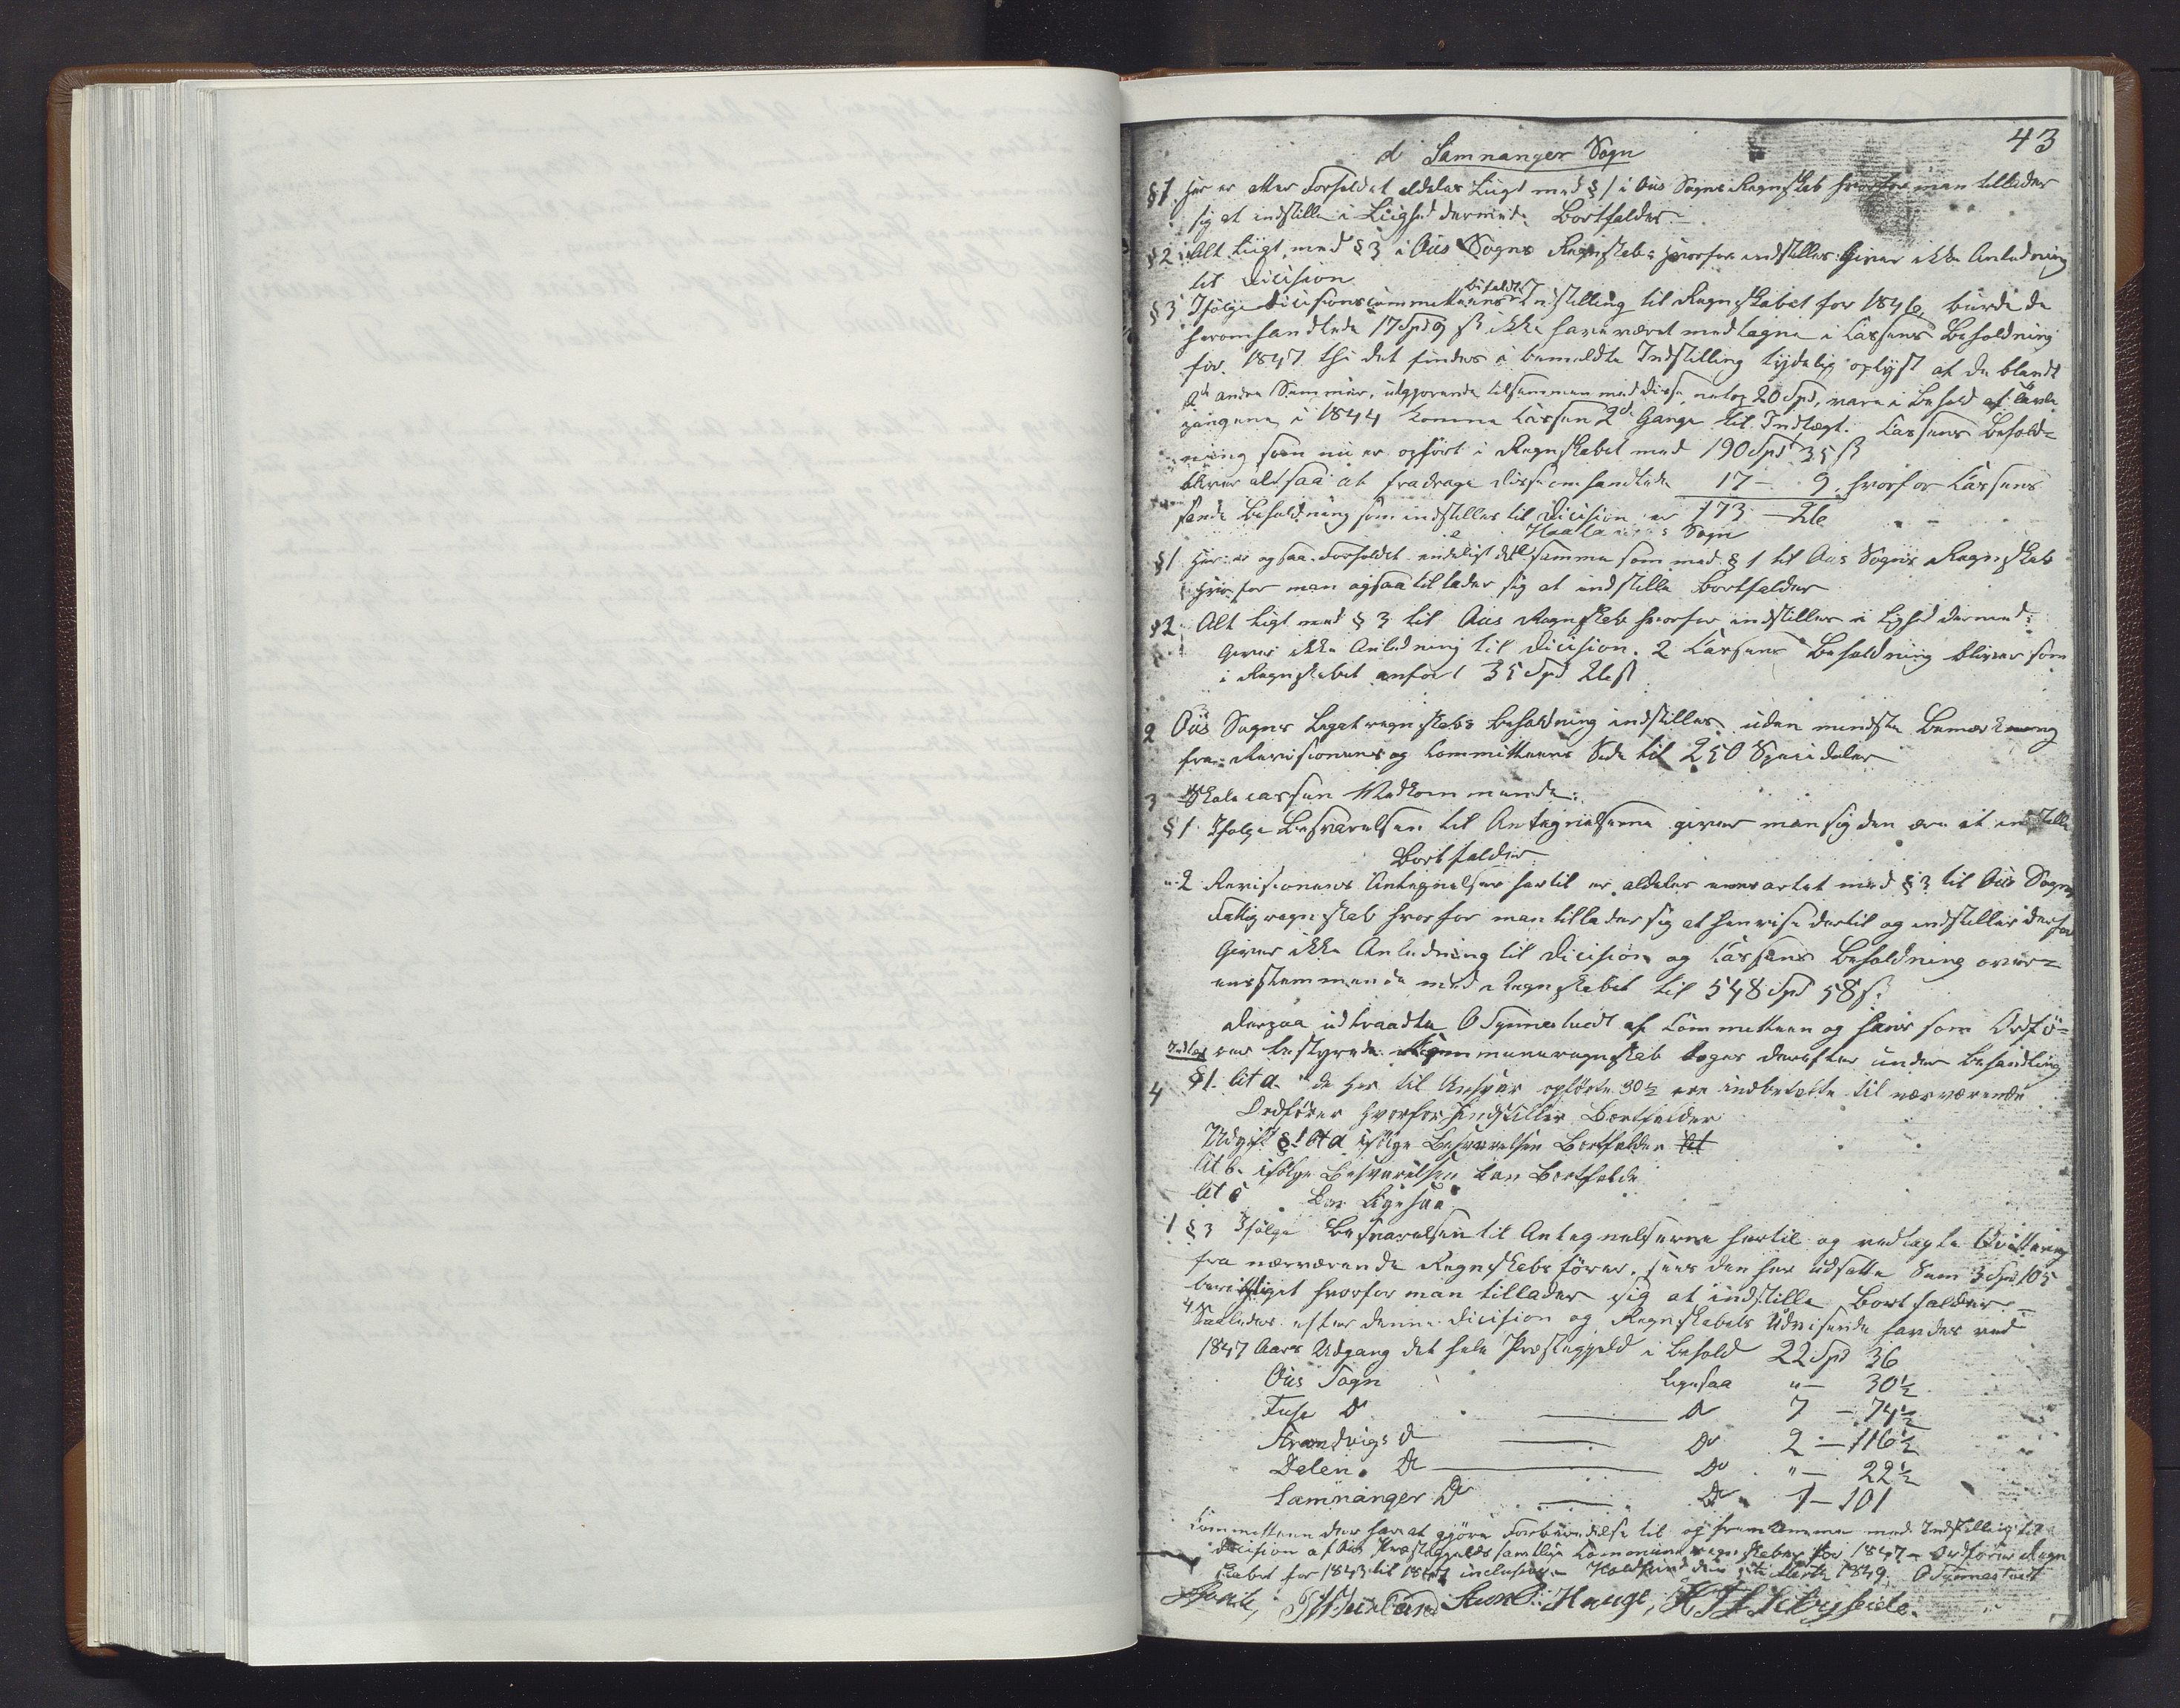 43
d Samnanger Sogn
§1 Her er atter Forholdet aldeles Liigt med §1 i Ous Sogns Regnskab hvorfor man tillader
sig at indstille i Liighed dermed: Bortfalder
§2 Alt Liigt med §3 i Ous Sogns Regnskab: hvorfor indstilles: Giver ikke Anledning
til Dicision
§3 Ifølge Dicisionscommitteens bifaldte Indstilling til Regnskabet for 1846, burde de
heromhandlede 17 Spd 9 ß ikke have været medtagne i Cassens Beholdning
for 1847 thi det findes i bemeldte Indstilling tydelig oplyst at de blandt
andre Summer, udgjørende tilsammen med disse netop 20 Spd, vare i Behold af
gangene i 1844 komne Cassen 2de Gange til Indtægt. Cassens Behold=
ning som nu er opført i Regnskabet med 190 Spd 35 ß
bliver altsaa at fradrage disse omhandlede 17 — 9, hvorfor Cassens
sande Beholdning som indstilles til Dicision er 173 — 26
e Sogn
§1 Her er ogsaa Forholdet endeligt det samme som med §1 til Ous Sogns Regnskab
hvorfor man ogsaa tillader sig at indstille Bortfalder
§2 Alt Ligt med §3 til Ous Regnskab hvorfor indstilles i Lighed dermed:
Giver ikke Anledning til Dicision. 2 Cassens Beholdning bliver som
i Regnskabet anført 35 Spd 26 ß
2 Ous Sogns Legatregnskabs Beholdning indstilles uden mindste Bemærkning
fra Revisionens og Committeens Side til 250 Speciedaler
3 Skolecassen Vedkommende:
§1 Ifølge Besvarelsen til Antegnelserne giver man sig den ære at indstille
Bortfalder
2 Revisionens Antegnelser hertil er aldeles eensartet med §3 til Ous Sogns
Fattigregnskab hvorfor man tillader sig at henvise dertil og indstiller derfor
Giver ikke Anledning til Dicision og Cassens Beholdning over=
eensstemmende med Regnskabet til 548 Spd 58 ß.
Derpaa udtraadte O Synnestvedt af Committeen og hans som Ordfø=
rer bestyrede Communeregnskab toges derefter under Behandling
4 Indtægt §1. lit a. de her til Ansvar opførte 30½ ere indbetalte til nærværende
Ordfører hvorfor indstilles Bortfalder
Udgift §1 lit a ifølge Besvarelsen Bortfalder
lit b. ifølge Besvarelsen kan Bortfalde
lit c Ligesaa
1 §3 Ifølge Besvarelsen til Antegnelserne hertil og vedlagte Qvittering
fra nærværende Regnskabsfører, sees den her udsatte Sum 3 Spd 105
berigtiget hvorfor man tillader sig at indstille Bortfalder
4 Saaledes efter denne Dicision og Regnskabets Udvisende havdes ved
1847 Aars Udgang det hele Præstegjeld i Behold 22 Spd 36
Ous Sogn ligesaa " — 30½
Fuse Do — Do 7 — 74½
Strandvigs Do — Do 2 — 116½
Dalen. Do — Do " — 22½
Samnanger Do — Do 1 — 101
Committeen der have at gjøre Forberedelse til og fremkomme med Indstilling til
Dicision af Ous Præstegjelds samtlige Communeregnskaber for 1847 — Ordfører Regn
skabet for 1843 til 1847 inclusive — Marts 1849. O Synnestvedt
Hauge,